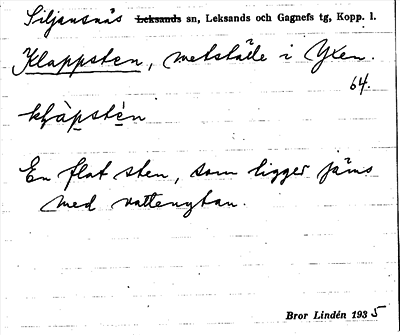 Siljansnäs Leksands sn, Leksands och Gagnefs tg, Kopp. l.
Klappsten, metställe i Yxen.
64.
kḷàpstèn
En flat sten, som ligger jäms
med vattenytan.
Bror Lindén 1935